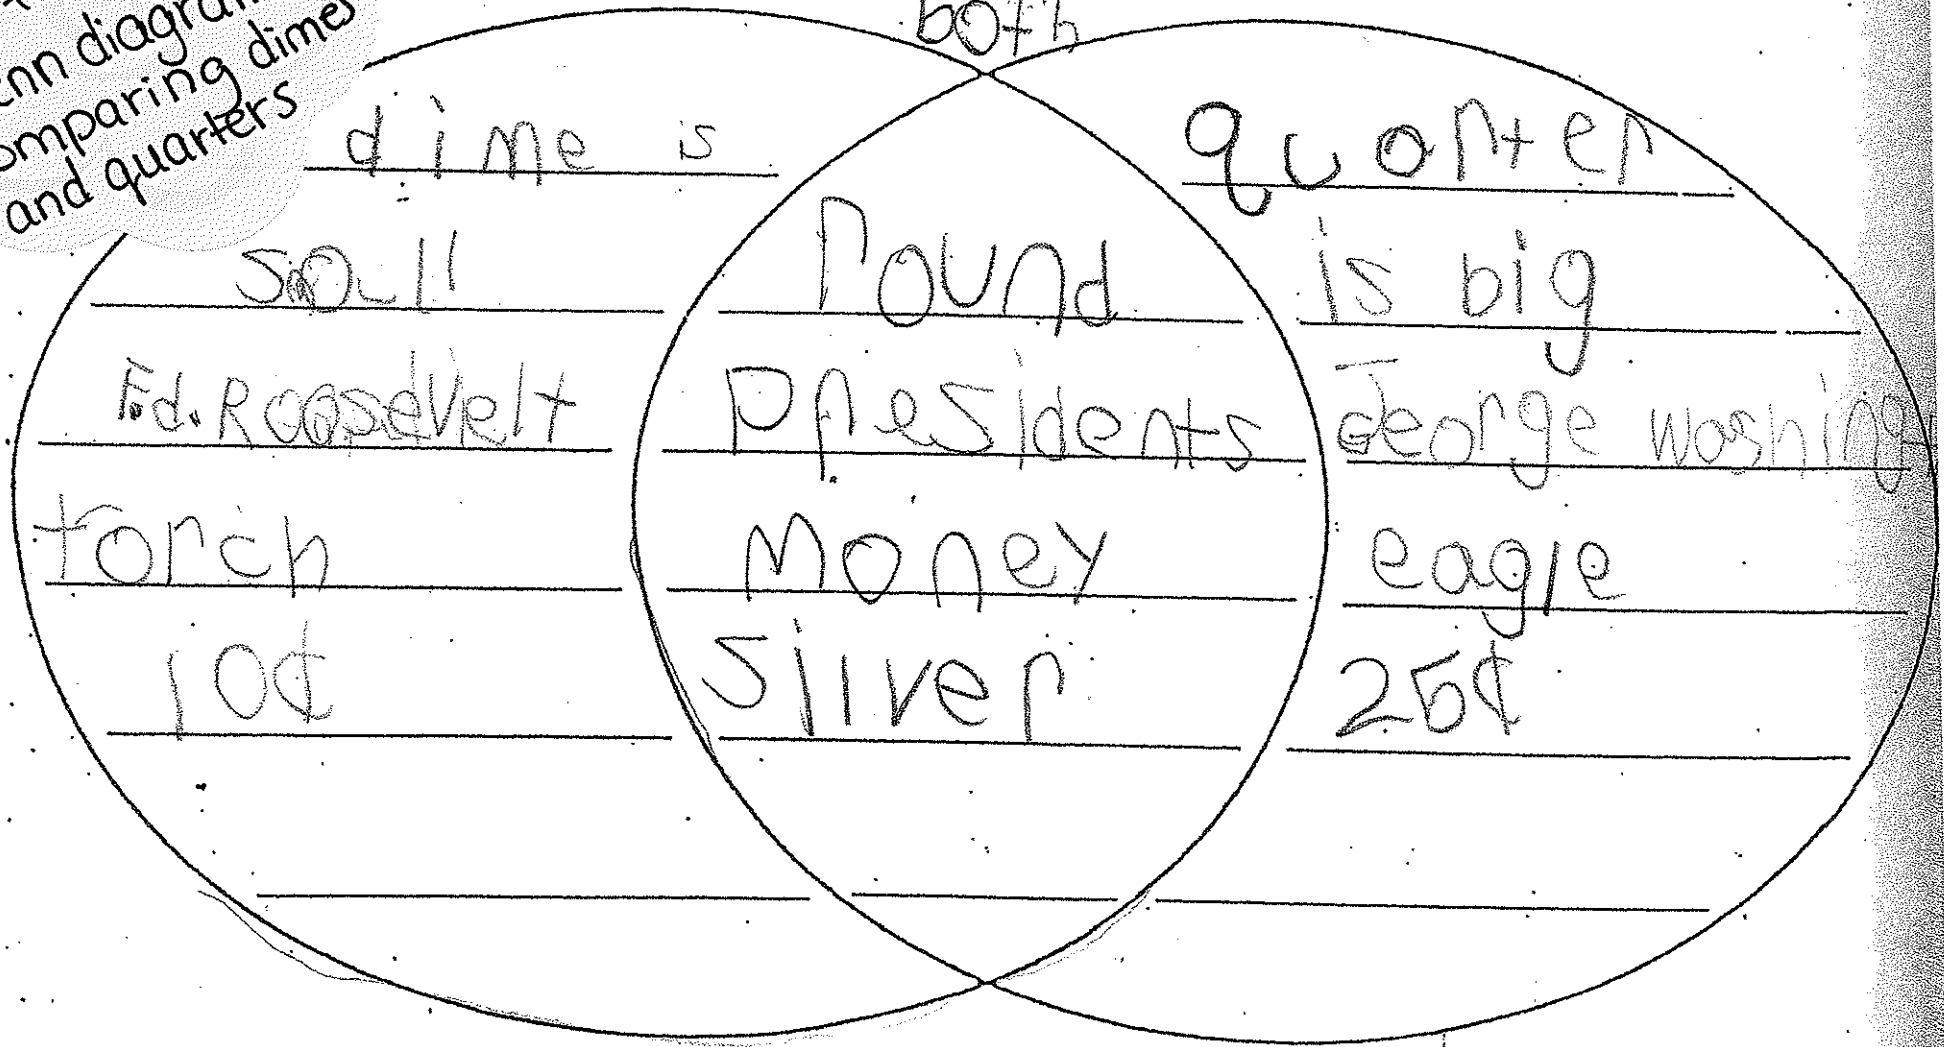 both
enn diagram
omparing dimes
and quarters
dime is
small
F.d. Roosevelt
torch
10¢
round
presidents
money
silver
quarter
is big
George washing
eagle
25¢